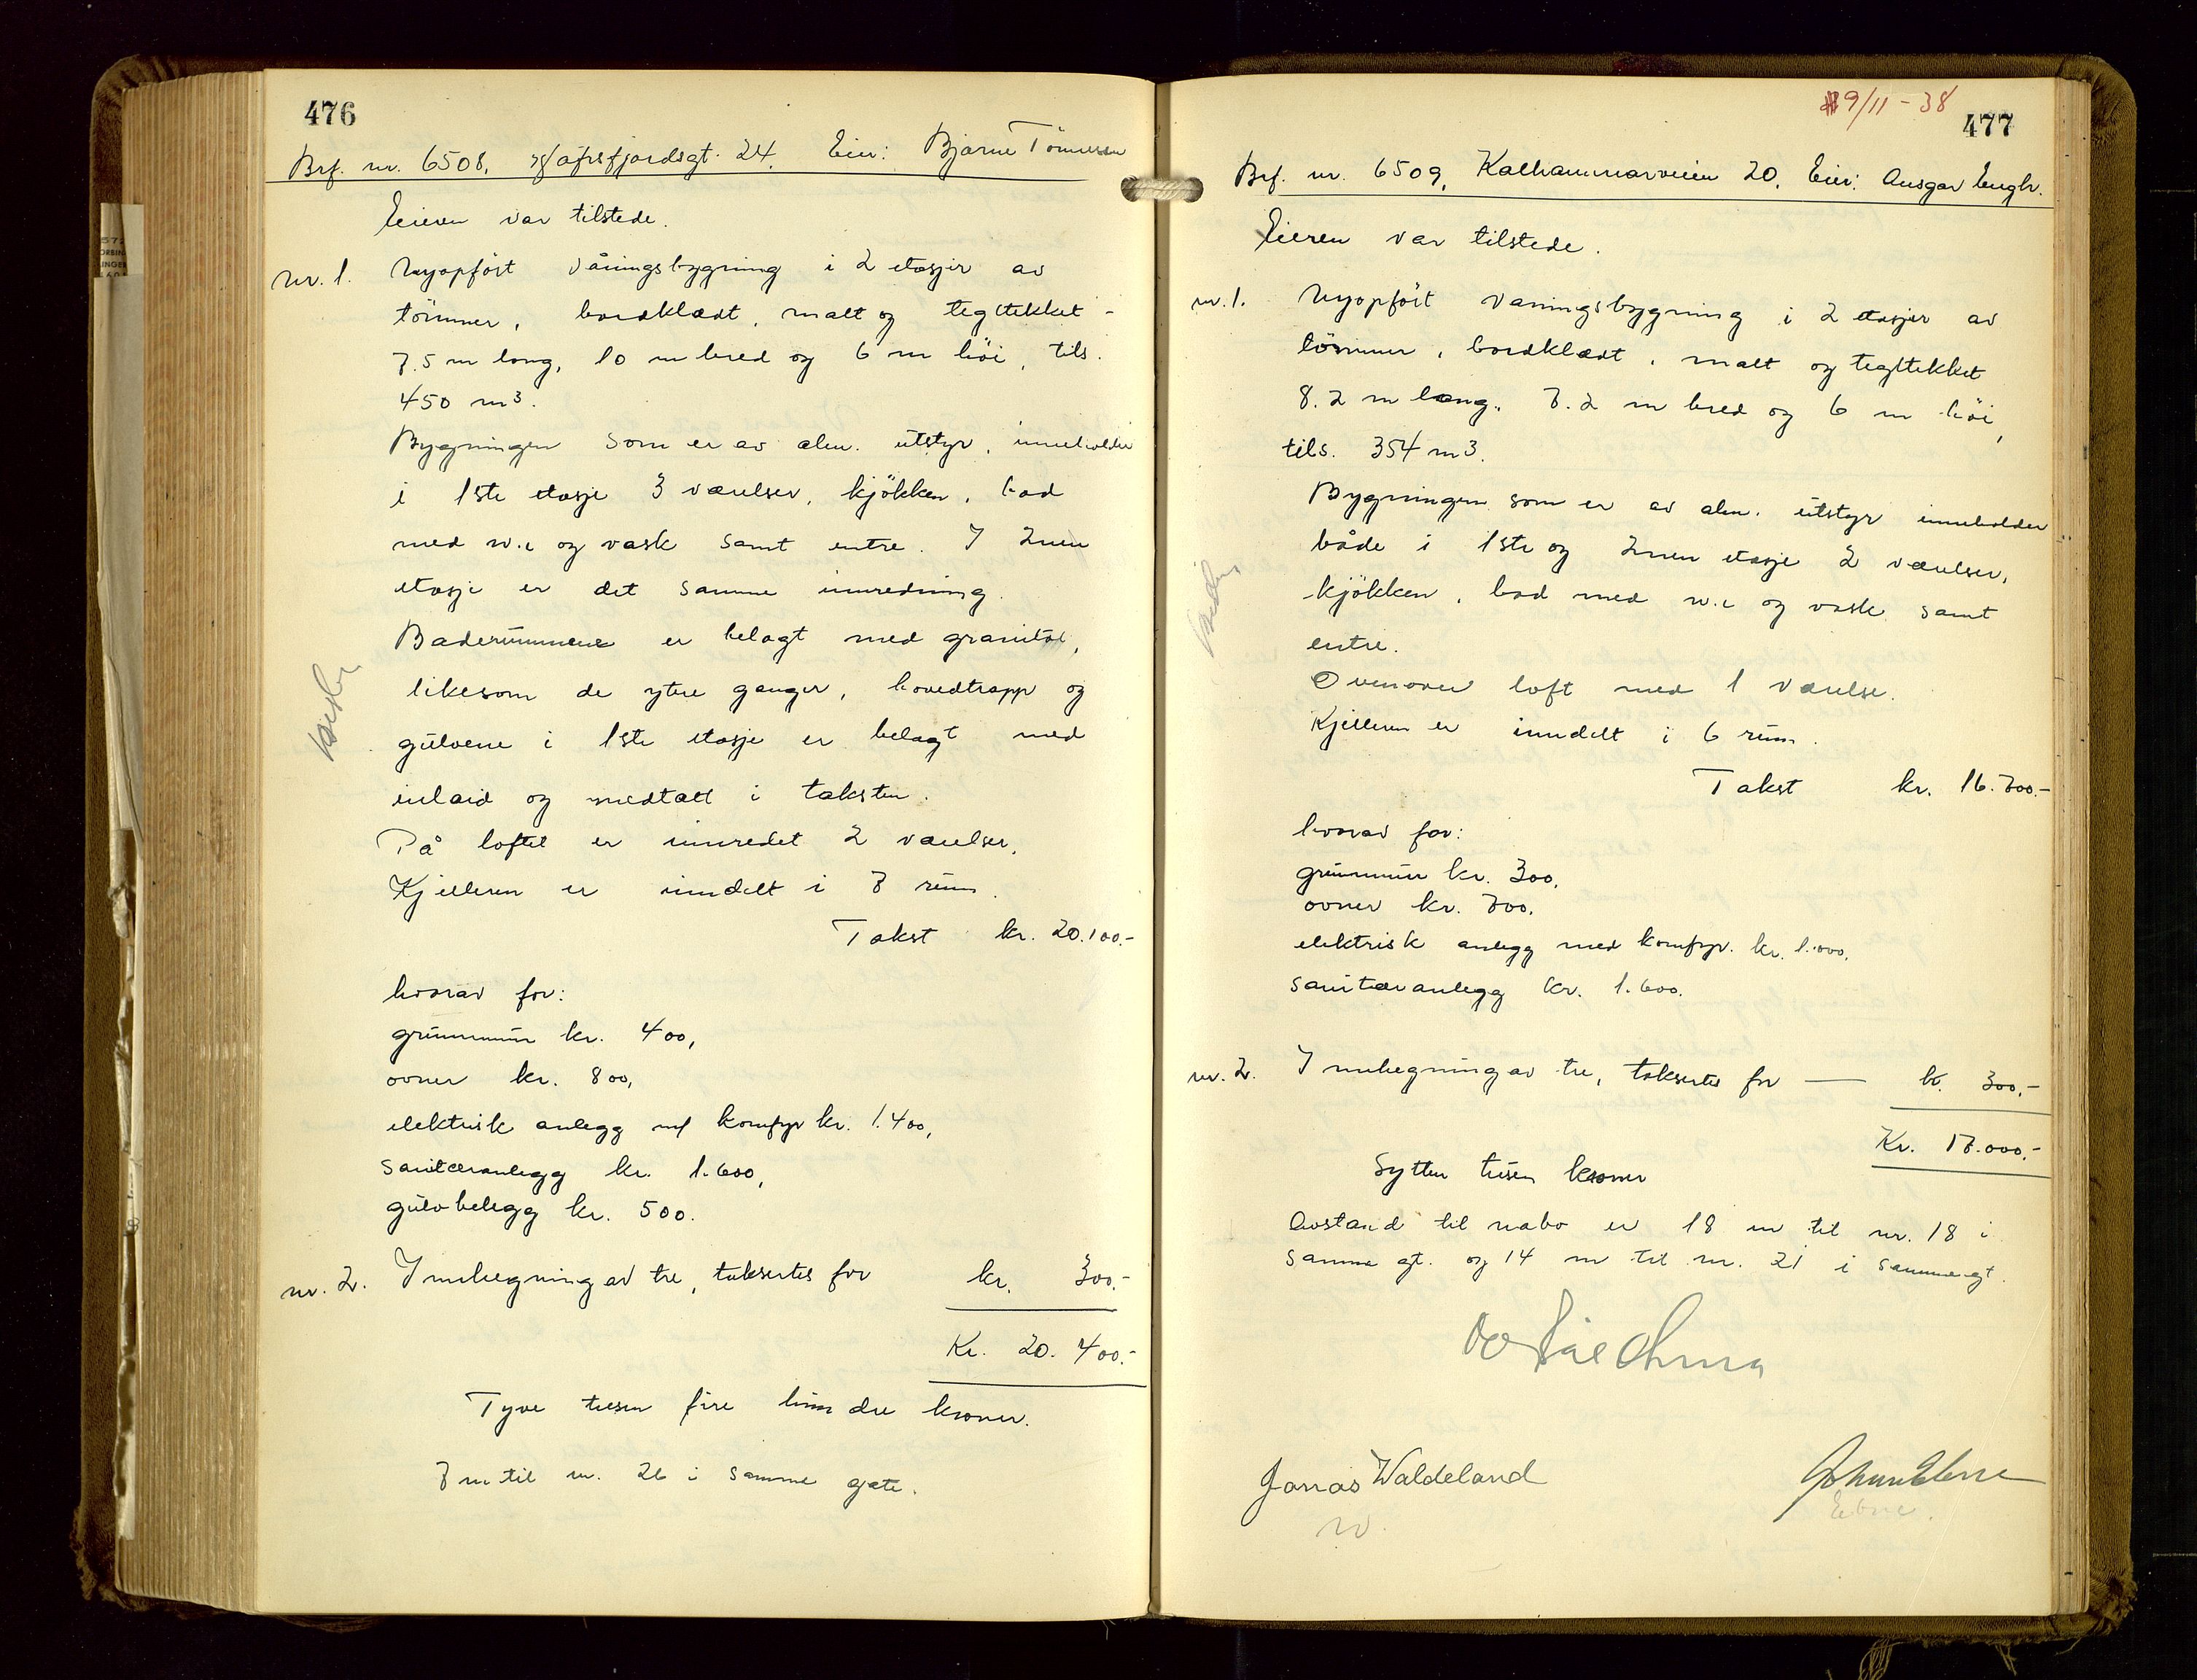 476
Brf. nr. 6508, Hafrsfjordsgt. 24. Eier: Bjarne Tönnesen
Eieren var tilstede.
nr. 1. Nyopfört våningsbygning i 2 etasjer av
tömmer, bordklædt, malt og tegltekket -
7.5 m lang, 10 m bred og 6 m höi, tils.
450 m3.
Bygningen som er av alm. utstyr, inneholder
i 1ste etasje 3 værelser, kjökken, bad
med w.c og vask samt entre. I 2nen
etasje er det samme innredning.
Baderummene er belagt med granitol,
likesom de ytre ganger, hovedtrapp og
gulvene i 1ste etasje er belagt med
inlaid og medtatt i taksten.
På loftet er innredet 2 værelser.
Kjelleren er inndelt i 7 rum.
Takst kr. 20.100.-
hvorav for:
grunnmur kr. 400,
ovner kr. 800,
elektrisk anlegg m/ komfyr kr. 1.400,
sanitæranlegg kr. 1.600,
gulvbelegg kr. 500.
nr. 2. Innhegning av tre, taksertes for kr. 300.-
Kr. 20.400.-
Tyve tusen fire hundre kroner.
7 m til nr. 26 i samme gate.
9/11 - 38
477
Brf. nr. 6509, Kalhammarveien 20. Eier: Ansgar Engh.
Eieren var tilstede.
nr. 1. Nyopfört våningsbygning i 2 etasjer av
tömmer, bordklædt, malt og tegltekket
8.2 m lang, 7.2 m bred og 6 m höi,
tils. 354 m3.
Bygningen som er av alm. utstyr inneholder
både i 1ste og 2nen etasje 2 værelser,
kjökken, bad med w.c og vask samt
entre.
Ovenover loft med 1 værelse.
Kjelleren er inndelt i 6 rum.
Takst kr. 16.700.-
hvorav for:
grunnmur kr. 300,
ovner kr. 700,
elektrisk anlegg med komfyr. kr. 1.000,
sanitæranlegg kr. 1.600.
nr. 2. Innhegning av tre, taksertes for — kr. 300,-
Kr. 17.000.-
Sytten tusen kroner
Avstand til nabo er 18 m til nr. 18 i
samme gt. og 14 m til nr. 21 i samme gt.
Jonas Waldeland
W.